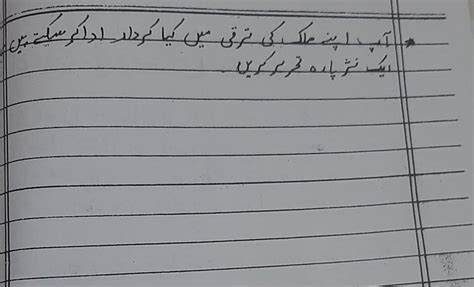 * آپ اپنے ملک کی ترقی میں کیا کردار ادا کر سکتے ہیں
ایک نثر پارہ تحریر کریں۔